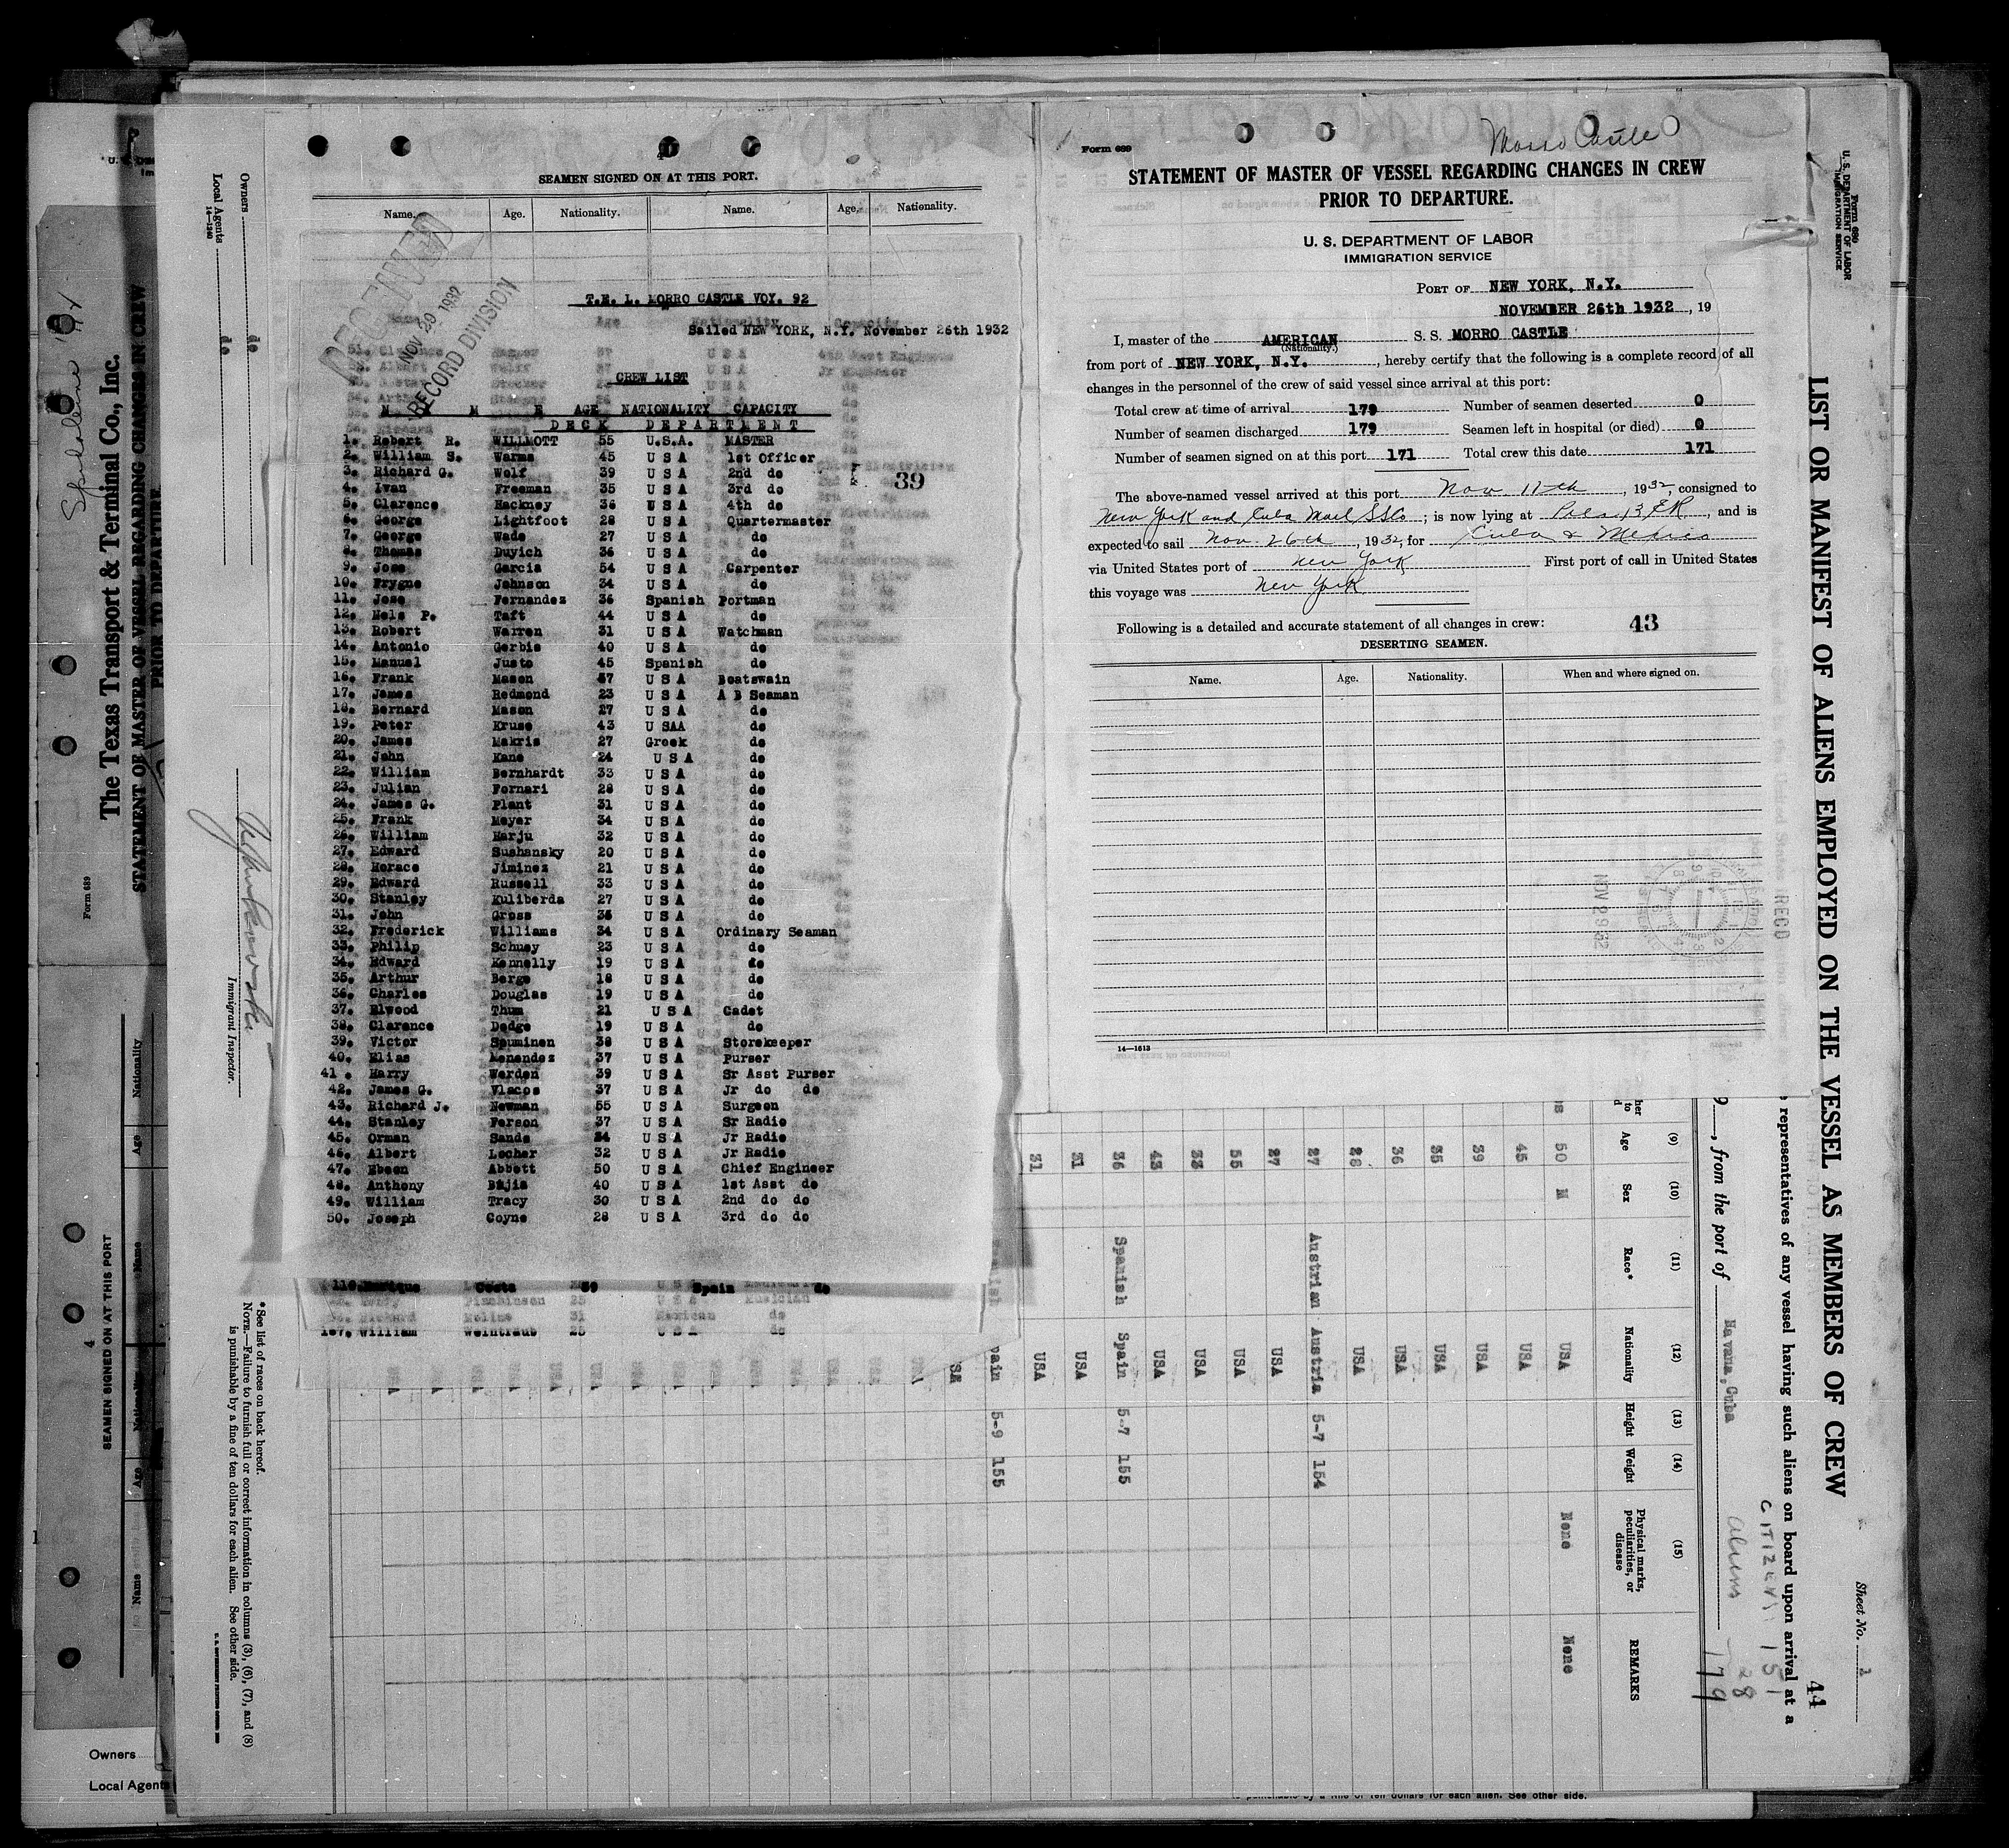 SEAMEN SIGNED ON AT THIS PORT.
Name. Age. Nationality. Name. Age. Nationality.
RECEIVED
NOV 29 1932
RECORD DIVISION
T.E. L. MORRO CASTLE VOY. 92
Sailed NEW YORK, N.Y. November 26th 1932
CREW LIST
N A M E AGE NATIONALITY CAPACITY
D E C K D E P A R T M E N T
1. Robert R. WILLMOTT 55 U.S.A. MASTER
2. William S. Warms 45 U S A 1st Officer
3. Richard G. Wolf 39 U S A 2nd do
4. Ivan Freeman 35 U S A 3rd do
5. Clarence Hackney 36 U S A 4th do
6. George Lightfoot 28 U S A Quartermaster
7. George Wade 27 U S A do
8. Thomas Duyich 36 U S A do
9. Jose Garcia 54 U S A Carpenter
10. Frygne Johnson 34 U S A do
11. Jose Fernandez 36 Spanish Portman
12. Nels P. Taft 44 U S A do
13. Robert Warren 31 U S A Watchman
14. Antonio Gerbis 40 U S A do
15. Manual Juste 45 Spanish do
16. Frank Mason 37 U S A Boatswain
17. James Redmond 23 U S A A B Seaman
18. Bernard Mason 27 U S A do
19. Peter Kruse 43 U SAA do
20. James Makris 27 Greek do
21. John Kane 24 U S A do
22. William Bernhardt 33 U S A do
23. Julian Fornari 28 U S A do
24. James G. Plant 31 U S A do
25. Frank Meyer 34 U S A do
26. William Harju 32 U S A do
27. Edward Sushansky 20 U S A do
28. Horace Jiminez 21 U S A do
29. Edward Russell 33 U S A do
30. Stanley Kuliberda 27 U S A do
31. John Gross 35 U S A do
32. Frederick Williams 34 U S A Ordinary Seaman
33. Philip Schuey 23 U S A do
34. Edward Kennelly 19 U S A do
35. Arthur Berge 18 U S A do
36. Charles Douglas 19 U S A do
37. Elwood Thum 21 U S A Cadet
38. Clarence Dodge 19 U S A do
39. Victor Suuminen 38 U S A Storekeeper
40. Elias Menendez 37 U S A Purser
41. Harry Warden 39 U S A Sr Asst Purser
42. James G. Vlacos 37 U S A Jr do do
43. Richard J. Newman 55 U S A Surgeon
44. Stanley Ferson 37 U S A Sr Radio
45. Orman Sands 24 U S A Jr Radio
46. Albert Locher 32 U S A Jr Radio
47. Ebeen Abbott 50 U S A Chief Engineer
48. Anthony Bujia 40 U S A 1st Asst do
49. William Tracy 30 U S A 2nd do do
50. Joseph Coyne 28 U S A 3rd do do
39
Costa 39 Spain do
167. William Weintraub 25 U S A do
Form 689
Morro Castle
STATEMENT OF MASTER OF VESSEL REGARDING CHANGES IN CREW
PRIOR TO DEPARTURE.
U. S. DEPARTMENT OF LABOR
IMMIGRATION SERVICE
PORT OF NEW YORK, N.Y.
NOVEMBER 26th 1932, 19
I, master of the AMERICAN S. S. MORRO CASTLE
(Nationality.)
from port of NEW YORK, N.Y., hereby certify that the following is a complete record of all
changes in the personnel of the crew of said vessel since arrival at this port:
Total crew at time of arrival 179 Number of seamen deserted 0
Number of seamen discharged 179 Seamen left in hospital (or died) 0
Number of seamen signed on at this port 171 Total crew this date 171
The above-named vessel arrived at this port Nov. 12th, 1932, consigned to
New York and Cuba Mail SSCo; is now lying at Pier 13 ER, and is
expected to sail Nov. 26th, 1932, for Cuba & Mexico
via United States port of New York First port of call in United States
this voyage was New York
Following is a detailed and accurate statement of all changes in crew:
43
DESERTING SEAMEN.
Name. Age. Nationality. When and where signed on.
14—1613
NOV 29 32
REC'D
Form 689
U. S. DEPARTMENT OF LABOR
IMMIGRATION SERVICE
LIST OR MANIFEST OF ALIENS EMPLOYED ON THE VESSEL AS MEMBERS OF CREW
Sheet No. 1
44
representatives of any vessel having such aliens on board upon arrival at a
, from the port of Havana, Cuba
CITIZENS 151
Aliens 28
179
(9) (10) (11) (12) (13) (14) (15)
Age Sex Race* Nationality Height Weight Physical marks, peculiarities, or disease REMARKS
50 M USA None None
45 USA
39 USA
35 USA
36 USA
28 USA
27 Austrian Austria 5-7 154
27 USA
55 USA
33 USA
43 USA
36 Spanish Spain 5-7 155
31 USA
31 USA
5-9 155
* See list of races on back hereof.
NOTE.—Failure to furnish full or correct information in columns (3), (6), (7), and (8)
is punishable by a fine of ten dollars for each alien. See other side.
Immigrant Inspector.
Owners do
Local Agents do
14-1240
The Texas Transport & Terminal Co., Inc.
STATEMENT OF MASTER OF VESSEL REGARDING CHANGES IN CREW
PRIOR TO DEPARTURE
Form 689
4
SEAMEN SIGNED ON AT THIS PORT
Name Age Nationality Name Age Nationality
Owners
Local Agents